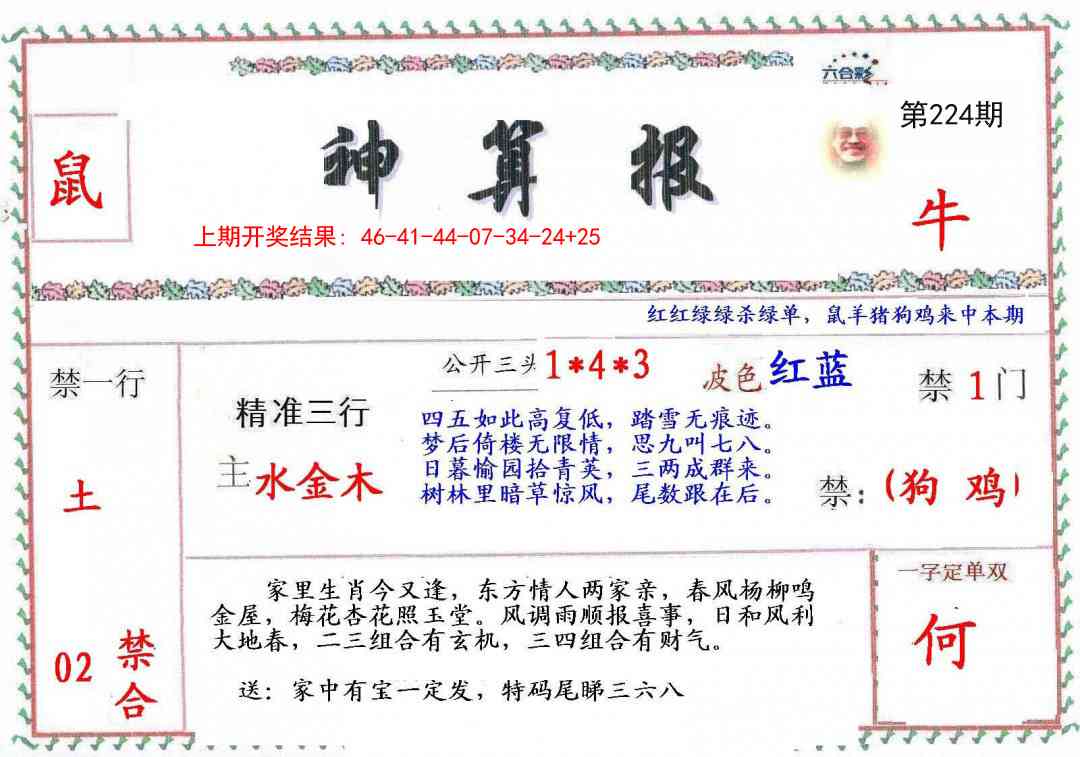 六合彩
第224期
鼠
神算报
牛
上期开奖结果：46-41-44-07-34-24+25
红红绿绿杀绿单，鼠羊猪狗鸡来中本期
禁一行
公开三头1*4*3
波色红蓝
禁1门
精准三行
四五如此高复低，踏雪无痕迹。
梦后倚楼无限情，思九叫七八。
日暮愉园拾青英，三两成群来。
树林里暗草惊风，尾数跟在后。
主水金木
土
禁：(狗 鸡)
家里生肖今又逢，东方情人两家亲，春风杨柳鸣
金屋，梅花杏花照玉堂。风调雨顺报喜事，日和风利
大地春，二三组合有玄机，三四组合有财气。
送：家中有宝一定发，特码尾睇三六八
一字定单双
何
02
禁合